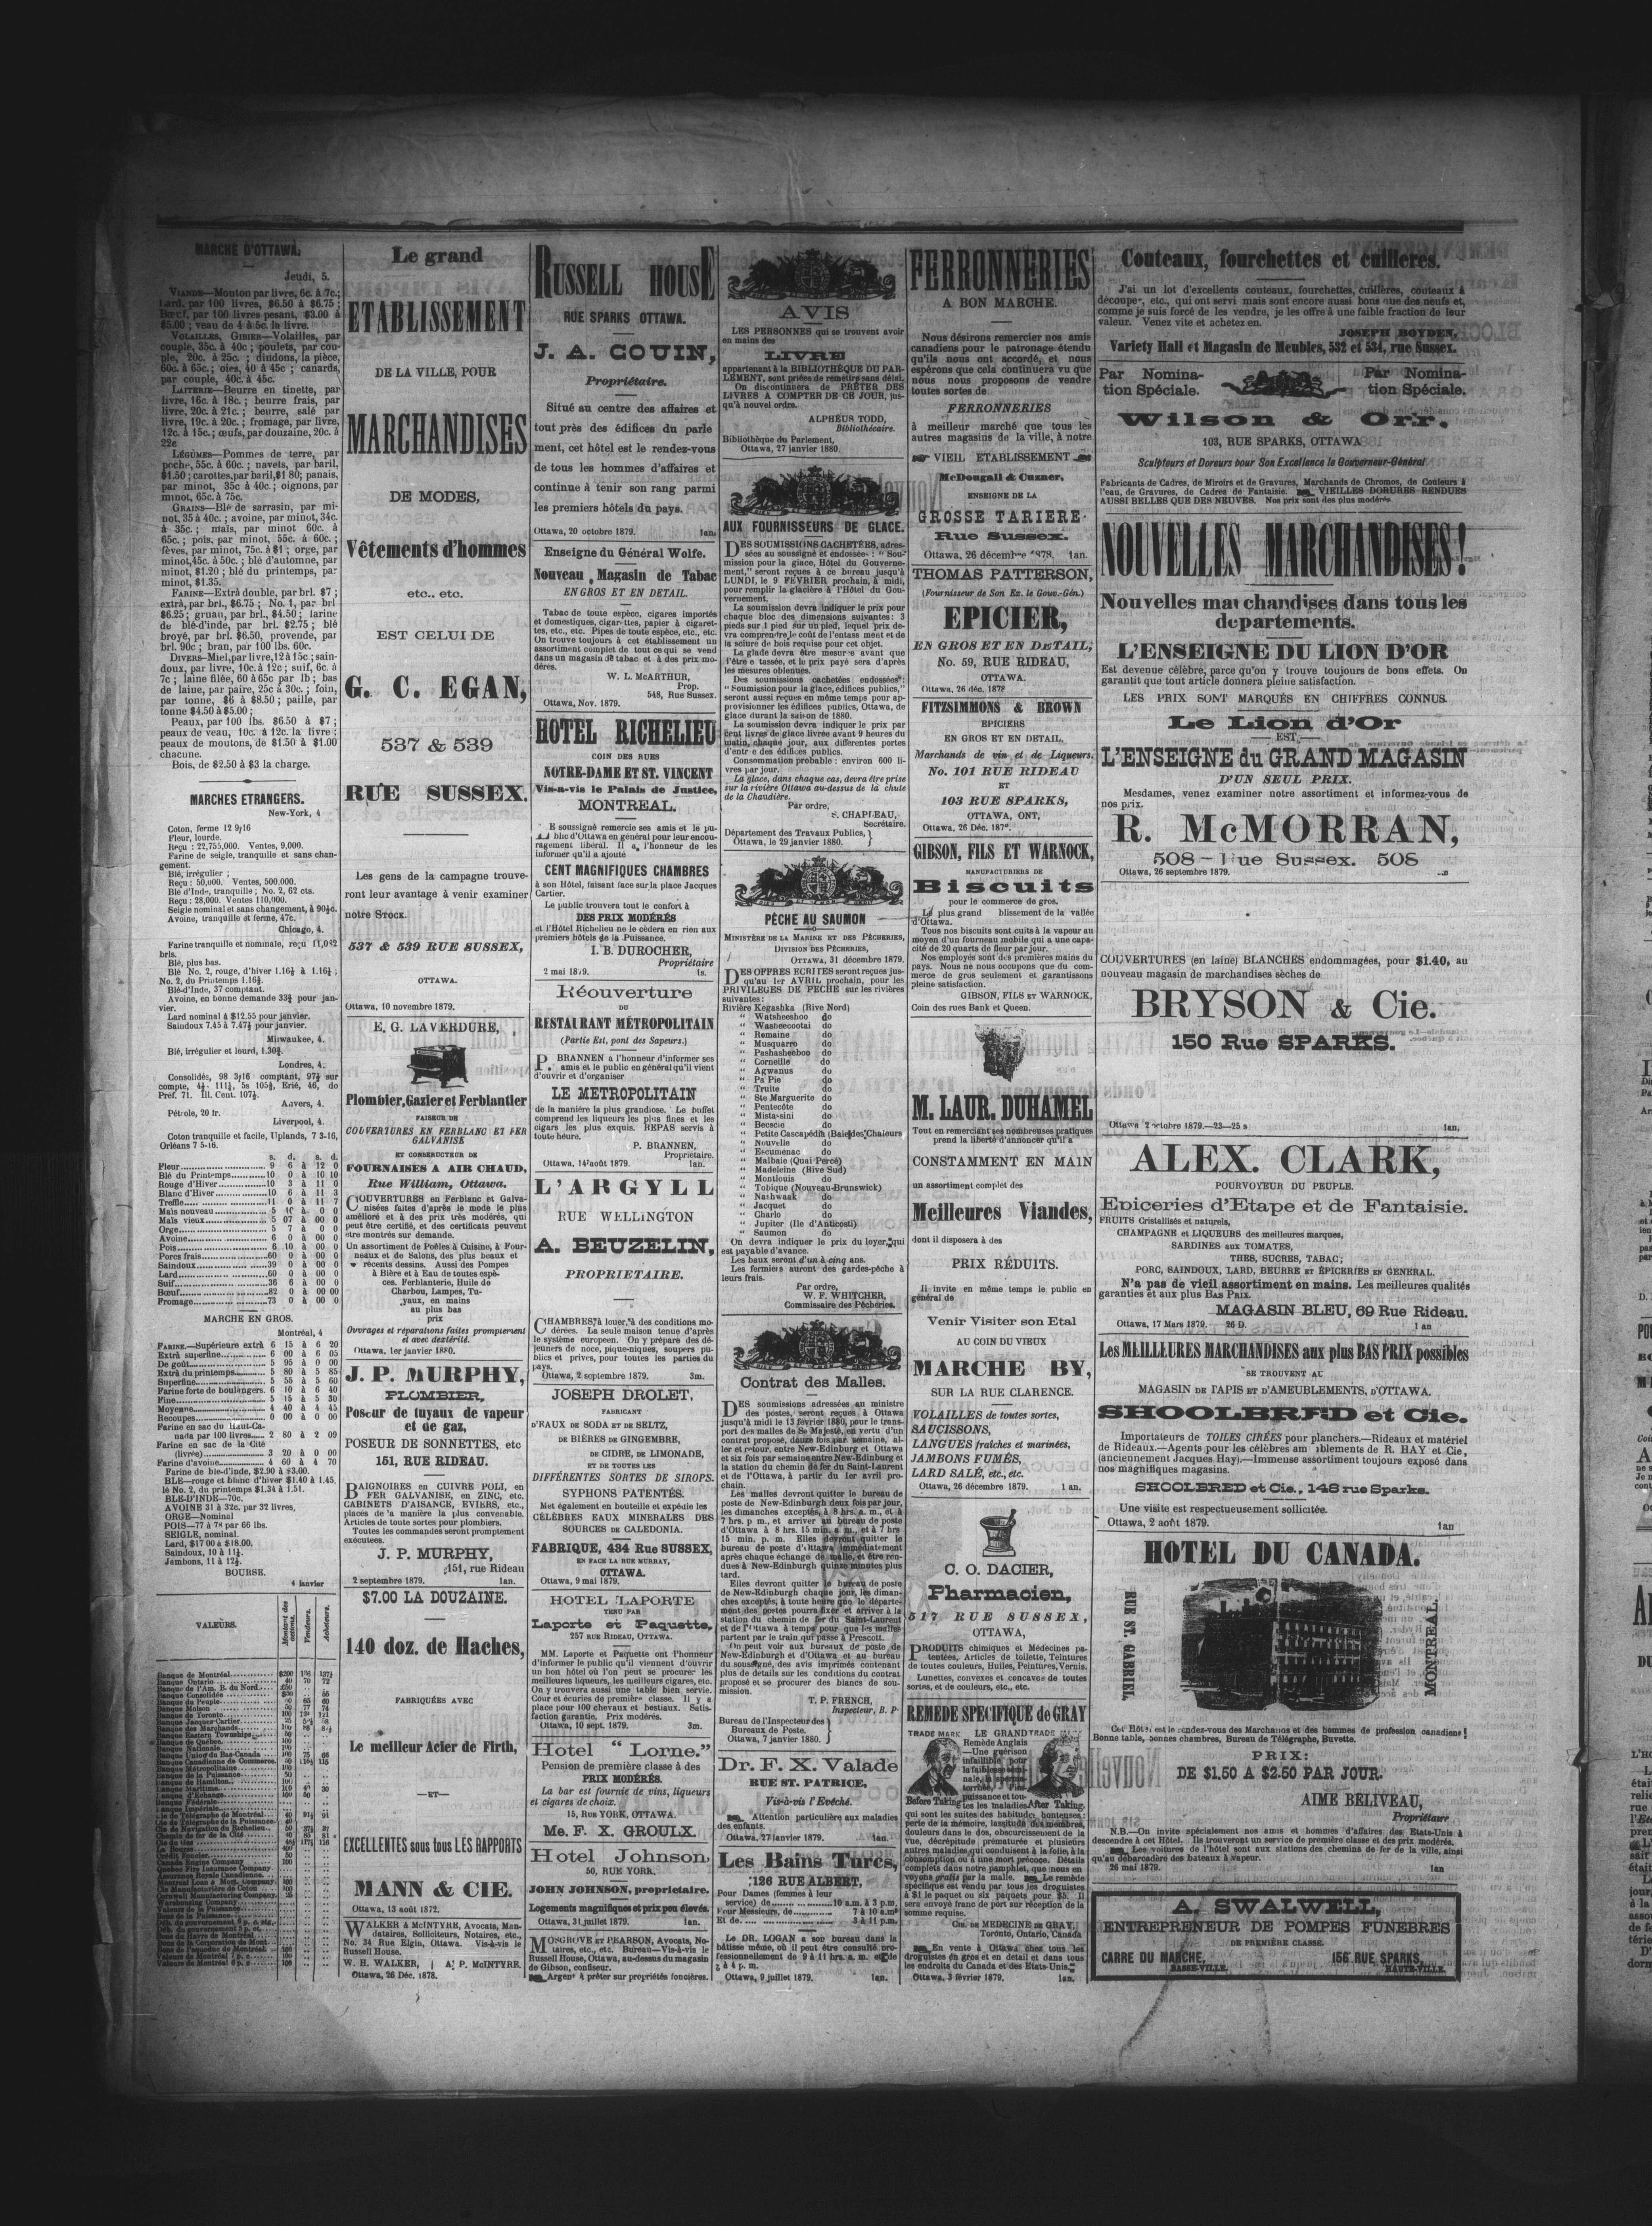 MARCHE D'OTTAWA.
Jeudi, 5.
VIANDE—Mouton par livre, 6c. à 7c.;
Lard, par 100 livres, $6.50 à $6.75;
Bœuf, par 100 livres pesant, $3.00 à
$5.00; veau de 4 à 5c. la livre.
VOLAILLES, GIBIER—Volailles, par
couple, 35c. à 40c; poulets, par cou-
ple, 20c. à 25c.; dindons, la pièce,
60c. à 65c.; oies, 40 à 45c; canards,
par couple, 40c. à 45c.
LAITERIE—Beurre en tinette, par
livre, 16c. à 18c.; beurre frais, par
livre, 20c. à 21c.; beurre, salé par
livre, 19c. à 20c.; fromage, par livre,
12c. à 15c.; œufs, par douzaine, 20c. à
22c
LÉGUMES—Pommes de terre, par
poche, 55c. à 60c.; navets, par baril,
$1.50; carottes, par baril, $1 80; panais,
par minot, 35c à 40c.; oignons, par
minot, 65c. à 75c.
GRAINS—Blé de sarrasin, par mi-
not, 35 à 40c.; avoine, par minot, 34c.
à 35c.; maïs, par minot 60c. à
65c.; pois, par minot, 55c. à 60c.;
fèves, par minot, 75c. à $1; orge, par
minot, 45c. à 50c.; blé d'automne, par
minot, $1.20; blé du printemps, par
minot, $1.35.
FARINE—Extrà double, par brl. $7;
extrà, par brl., $6.75; No. 1, par brl
$6.25; gruau, par brl., $4.50; farine
de blé-d'inde, par brl. $2.75; blé
broyé, par brl. $6.50, provende, par
brl. 90c; bran, par 100 lbs. 60c.
DIVERS—Miel, par livre, 12 à 15c; sain-
doux, par livre, 10c. à 12c; suif, 6c. à
7c; laine filée, 60 à 65c par lb; bas
de laine, par paire, 25c à 30c.; foin,
par tonne, $6 à $8.50; paille, par
tonne $4.50 à $5.00;
Peaux, par 100 lbs. $6.50 à $7;
peaux de veau, 10c. à 12c. la livre:
peaux de moutons, de $1.50 à $1.00
chacune.
Bois, de $2.50 à $3 la charge.
MARCHES ETRANGERS.
New-York, 4
Coton, ferme 12 9/16
Fleur, lourde.
Reçu: 22,755,000. Ventes, 9,000.
Farine de seigle, tranquille et sans chan-
gement.
Blé, irrégulier;
Reçu: 50,000. Ventes, 500,000.
Blé d'Inde, tranquille; No. 2, 62 cts.
Reçu: 28,000. Ventes 110,000.
Seigle nominal et sans changement, à 90½c.
Avoine, tranquille et ferme, 47c.
Chicago, 4.
Farine tranquille et nominale, reçu 11,082
bris.
Blé, plus bas.
Blé No. 2, rouge, d'hiver 1.16½ à 1.16¼;
No. 2, du Printemps 1.16½.
Blé-d'Inde, 37 comptant.
Avoine, en bonne demande 33¾ pour jan-
vier.
Lard nominal à $12.55 pour janvier.
Saindoux 7.45 à 7.47½ pour janvier.
Milwaukee, 4.
Blé, irrégulier et lourd, 1.30¾.
Londres, 4.
Consolidés, 98 3/16 comptant, 97½ sur
compte, 4½ 111½, 5s 105½, Erié, 46, do
Préf. 71. Ill. Cent. 107½.
Anvers, 4.
Pétrole, 20 fr.
Liverpool, 4.
Coton tranquille et facile, Uplands, 7 3-16,
Orléans 7 5-16.
s. d. s. d.
Fleur 9 6 à 12 0
Blé du Printemps 10 0 à 10 10
Rouge d'Hiver 10 3 à 11 0
Blanc d'Hiver 10 6 à 11 3
Treffle 11 0 à 11 7
Maïs nouveau 5 10 à 0 0
Maïs vieux 5 07 à 00 0
Orge 5 7 à 0 0
Avoine 6 0 à 00 0
Pois 6 10 à 00 0
Porcs frais 60 0 à 00 0
Saindoux 39 0 à 00 0
Lard 60 0 à 00 0
Suif 36 6 à 00 0
Bœuf 82 0 à 00 00
Fromage 73 0 à 00 0
MARCHE EN GROS.
Montréal, 4
FARINE.—Supérieure extrà 6 15 à 6 20
Extrà superfine 6 00 à 6 05
De goût 5 95 à 0 00
Extrà du printemps 5 80 à 5 85
Superfine 5 55 à 5 60
Farine forte de boulangers. 6 10 à 6 40
Fine 5 15 à 5 30
Moyenne 4 40 à 4 45
Recoupes 0 00 à 0 00
Farine en sac du Haut-Ca-
nada par 100 livres 2 80 à 2 09
Farine en sac de la Cité
(livrée) 3 20 à 0 00
Farine d'avoine 4 60 à 4 70
Farine de blé-d'inde, $2.90 à $3.00.
BLE—rouge et blanc d'hiver $1.40 à 1.45.
lé No. 2, du printemps $1.34 à 1.51.
BLE-D'INDE—70c.
AVOINE 31 à 32c. par 32 livres,
ORGE—Nominal
POIS—77 à 78 par 66 lbs.
SEIGLE, nominal.
Lard, $17 00 à $18.00.
Saindoux, 10 à 11½.
Jambons, 11 à 12½.
BOURSE.
4 janvier
VALEURS.
Montant des actions.
Vendeurs.
Acheteurs.
Banque de Montréal $200 136 137½
Banque Ontario 40 70 72
Banque de l'Am. B. du Nord
Banque Consolidée
Banque du Peuple
Banque Molson
Banque de Toronto
Banque Jacques-Cartier
Banque des Marchands
Banque Eastern Townships
Banque de Québec
Banque Nationale
Banque Union du Bas-Canada
Banque Canadienne de Commerce
Banque Métropolitaine
Banque de la Puissance
Banque de Hamilton
Banque Maritime
Banque d'Echange
Banque Fédérale
Banque Impériale
Cie de Télégraphe de Montréal
Cie de Télégraphe de la Puissance
Cie de Navigation du Richelieu
Chemin de fer de la Cité
Cie du Gaz
Crédit Foncier
Canada Engine Company
Québec Fire Insurance Company
Assurance Royale Canadienne
Montreal Loan & Mort. Company
Cie Manufacturière de Coton
Cornwall Manufacturing Company
Le grand
ETABLISSEMENT
DE LA VILLE, POUR
MARCHANDISES
DE MODES,
Vêtements d'hommes
etc., etc.
EST CELUI DE
G. C. EGAN,
537 & 539
RUE SUSSEX.
Les gens de la campagne trouve-
ront leur avantage à venir examiner
notre STOCK.
537 & 539 RUE SUSSEX,
OTTAWA.
Ottawa, 10 novembre 1879.
E. G. LAVERDURE,
Plombier, Gazier et Ferblantier
FAISEUR DE
COUVERTURES EN FERBLANC ET FER
GALVANISE
ET CONSTRUCTEUR DE
FOURNAISES A AIR CHAUD,
Rue William, Ottawa.
COUVERTURES en Ferblanc et Galva-
nisées faites d'après le mode le plus
amélioré et à des prix très modérés, qui
peut être certifié, et des certificats peuvent
être montrés sur demande.
Un assortiment de Poëles à Cuisine, à Four-
neaux et de Salons, des plus beaux et
récents dessins. Aussi des Pompes
à Bière et à Eau de toutes espè-
ces. Ferblanterie, Huile de
Charbou, Lampes, Tu-
yaux, en mains
au plus bas
prix
Ouvrages et réparations faites promptement
et avec dextérité.
Ottawa, 1er janvier 1880.
J. P. MURPHY,
PLOMBIER,
Poseur de tuyaux de vapeur
et de gaz,
POSEUR DE SONNETTES, etc
151, RUE RIDEAU.
BAIGNOIRES en CUIVRE POLI, en
FER GALVANISE, en ZINC, etc.
CABINETS D'AISANCE, EVIERS, etc.,
places de la manière la plus convenable.
Articles de toute sortes pour plombiers.
Toutes les commandes seront promptement
exécutées.
J. P. MURPHY,
151, rue Rideau
2 septembre 1879. 1an.
$7.00 LA DOUZAINE.
140 doz. de Haches,
FABRIQUÉES AVEC
Le meilleur Acier de Firth,
—ET—
EXCELLENTES sous tous LES RAPPORTS
MANN & CIE.
Ottawa, 13 août 1872.
WALKER & McINTYRE, Avocats, Man-
dataires, Solliciteurs, Notaires, etc.,
No. 34 Rue Elgin, Ottawa. Vis-à-vis le
Russell House.
W. H. WALKER, | A. P. McINTYRE.
Ottawa, 26 Déc. 1878.
RUSSELL HOUSE
RUE SPARKS OTTAWA.
J. A. GOUIN,
Propriétaire.
Situé au centre des affaires et
tout près des édifices du parle
ment, cet hôtel est le rendez-vous
de tous les hommes d'affaires et
continue à tenir son rang parmi
les premiers hôtels du pays.
Ottawa, 20 octobre 1879. 1an.
Enseigne du Général Wolfe.
Nouveau Magasin de Tabac
EN GROS ET EN DETAIL.
Tabac de toute espèce, cigares importés
et domestiques, cigarettes, papier à cigaret-
tes, etc., etc. Pipes de toute espèce, etc., etc.
On trouve toujours à cet établissement un
assortiment complet de tout ce qui se vend
dans un magasin de tabac et à des prix mo-
dérés.
W. L. McARTHUR,
Prop.
548, Rue Sussex.
Ottawa, Nov. 1879.
HOTEL RICHELIEU
COIN DES RUES
NOTRE-DAME ET ST. VINCENT
Vis-a-vis le Palais de Justice,
MONTREAL.
E soussigné remercie ses amis et le pu-
blic d'Ottawa en général pour leur encou-
ragement libéral. Il a l'honneur de les
informer qu'il a ajouté
CENT MAGNIFIQUES CHAMBRES
à son Hôtel, faisant face sur la place Jacques
Cartier.
Le public trouvera tout le confort à
DES PRIX MODÉRÉS
et l'Hôtel Richelieu ne le cèdera en rien aux
premiers hôtels de la Puissance.
I. B. DUROCHER,
Propriétaire
2 mai 1879. 1s.
Réouverture
DU
RESTAURANT MÉTROPOLITAIN
(Partie Est, pont des Sapeurs.)
P. BRANNEN a l'honneur d'informer ses
amis et le public en général qu'il vient
d'ouvrir et d'organiser
LE METROPOLITAIN
de la manière la plus grandiose. Le buffet
comprend les liqueurs les plus fines et les
cigars les plus exquis. REPAS servis à
toute heure.
P. BRANNEN,
Propriétaire.
Ottawa, 14 août 1879. 1an.
L'ARGYLL
RUE WELLINGTON
A. BEUZELIN,
PROPRIETAIRE.
CHAMBRES à louer, à des conditions mo-
dérées. La seule maison tenue d'après
le système européen. On y prépare des dé-
jeuners de noce, pique-niques, soupers pu-
blics et privés, pour toutes les parties du
pays.
Ottawa, 2 septembre 1879. 3m.
JOSEPH DROLET,
FABRICANT
D'EAUX DE SODA ET DE SELTZ,
DE BIÈRES DE GINGEMBRE,
DE CIDRE, DE LIMONADE,
ET DE TOUTES LES
DIFFÉRENTES SORTES DE SIROPS.
SYPHONS PATENTÉS.
Met également en bouteille et expédie les
CÉLÈBRES EAUX MINERALES DES
SOURCES DE CALEDONIA.
FABRIQUE, 434 Rue SUSSEX,
EN FACE LA RUE MURRAY,
OTTAWA.
Ottawa, 9 mai 1879.
HOTEL LAPORTE
TENU PAR
Laporte et Paquette,
257 RUE RIDEAU, OTTAWA.
MM. Laporte et Paquette ont l'honneur
d'informer le public qu'il viennent d'ouvrir
un bon hôtel où l'on peut se procurer les
meilleures liqueurs, les meilleurs cigares, etc.
On y trouvera aussi une table bien servie.
Cour et écuries de première classe. Il y a
place pour 100 chevaux et bestiaux. Satis-
faction garantie. Prix modérés.
Ottawa, 10 sept. 1879. 3m.
Hotel "Lorne."
Pension de première classe à des
PRIX MODÉRÉS.
La bar est fournie de vins, liqueurs
et cigares de choix.
15, RUE YORK, OTTAWA.
Me. F. X. GROULX.
Hotel Johnson,
50, RUE YORK.
JOHN JOHNSON, proprietaire.
Logements magnifiques et prix peu élevés.
Ottawa, 31 juillet 1879. 1an.
MOSGROVE ET PEARSON, Avocats, No-
taires, etc., etc. Bureau—Vis-à-vis le
Russell House, Ottawa, au-dessus du magasin
de Gibson, confiseur.
Argent à prêter sur propriétés foncières.
AVIS
LES PERSONNES qui se trouvent avoir
en mains des
LIVRE
appartenant à la BIBLIOTHÈQUE DU PAR-
LEMENT, sont priées de remettre sans délai.
On discontinuera de PRÊTER DES
LIVRES A COMPTER DE CE JOUR, jus-
qu'à nouvel ordre.
ALPHEUS TODD,
Bibliothécaire.
Bibliothèque du Parlement,
Ottawa, 27 janvier 1880.
AUX FOURNISSEURS DE GLACE.
DES SOUMISSIONS CACHETÉES, adres-
sées au soussigné et endossée: "Sou-
mission pour la glace, Hôtel du Gouverne-
ment," seront reçues à ce bureau jusqu'à
LUNDI, le 9 FEVRIER prochain, à midi,
pour remplir la glacière à l'Hôtel du Gou-
vernement.
La soumission devra indiquer le prix pour
chaque bloc des dimensions suivantes: 3
pieds sur 1 pied sur un pied, lequel prix de-
vra comprendre le coût de l'entassement et de
la sciure de bois requise pour cet objet.
La glace devra être mesurée avant que
l'être entassée, et le prix payé sera d'après
les mesures obtenues.
Des soumissions cachetées endossées:
"Soumission pour la glace, édifices publics,"
seront aussi reçues en même temps pour ap-
provisionner les édifices publics, Ottawa, de
glace durant la saison de 1880.
La soumission devra indiquer le prix par
cent livres de glace livrée avant 9 heures du
matin, chaque jour, aux différentes portes
d'entrée des édifices publics.
Consommation probable: environ 600 li-
vres par jour.
La glace, dans chaque cas, devra être prise
sur la rivière Ottawa au-dessus de la chute
de la Chaudière.
Par ordre,
S. CHAPLEAU,
Secrétaire.
Département des Travaux Publics,
Ottawa, le 29 janvier 1880.
PÊCHE AU SAUMON
MINISTÈRE DE LA MARINE ET DES PÊCHERIES,
DIVISION DES PÊCHERIES,
OTTAWA, 31 décembre 1879.
DES OFFRES ECRITES seront reçues jus-
qu'au 1er AVRIL prochain, pour les
PRIVILÈGES DE PECHE sur les rivières
suivantes:
Rivière Kegashka (Rive Nord)
" Watsheeshoo do
" Washeecootai do
" Romaine do
" Musquarro do
" Pashasheeboo do
" Corneille do
" Agwanus do
" Pa Pie do
" Truite do
" Ste Marguerite do
" Pentecôte do
" Mistassini do
" Becscie do
" Petite Cascapédia (Baie des Chaleurs
" Nouvelle do
" Escumenac do
" Malbaie (Quai Percé)
" Madeleine (Rive Sud)
" Montlouis do
" Tobique (Nouveau-Brunswick)
" Nashwaak do
" Jacquet do
" Charlo do
" Jupiter (Ile d'Anticosti)
" Saumon do
On devra indiquer le prix du loyer, qui
est payable d'avance.
Les baux seront d'un à cinq ans.
Les fermiers auront des gardes-pêche à
leurs frais.
Par ordre,
W. F. WHITCHER,
Commissaire des Pêcheries.
Contrat des Malles.
DES soumissions adressées au ministre
des postes, seront reçues à Ottawa
jusqu'à midi le 13 février 1880, pour le trans-
port des malles de Sa Majesté, en vertu d'un
contrat proposé, douze fois par semaine, al-
ler et retour, entre New-Edinburg et Ottawa
et six fois par semaine entre New-Edinburg et
la station du chemin de fer du Saint-Laurent
et de l'Ottawa, à partir du 1er avril pro-
chain.
Les malles devront quitter le bureau de
poste de New-Edinburgh deux fois par jour,
les dimanches exceptés, à 8 hrs. a. m., et à
7 hrs. p. m., et arriver au bureau de poste
d'Ottawa à 8 hrs. 15 min. a. m., et à 7 hrs
15 min. p. m. Elles devront quitter le
bureau de poste d'Ottawa immédiatement
après chaque échange de malle, et être ren-
dues à New-Edinburgh quinze minutes plus
tard.
Elles devront quitter le bureau de poste
de New-Edinburgh chaque jour, les diman-
ches exceptés, à toute heure que le départe-
ment des postes pourra fixer et arriver à la
station du chemin de fer du Saint-Laurent
et de l'Ottawa à temps pour que les malles
partent par le train qui passe à Prescott.
On peut voir aux bureaux de poste de
New-Edinburgh et d'Ottawa et au bureau
du soussigné, des avis imprimés contenant
plus de détails sur les conditions du contrat
proposé et se procurer des blancs de sou-
mission.
T. P. FRENCH,
Inspecteur, B. P.
Bureau de l'Inspecteur des
Bureaux de Poste,
Ottawa, 7 janvier 1880.
Dr. F. X. Valade
RUE ST. PATRICE,
Vis-à-vis l'Evêché.
Attention particulière aux maladies
des enfants.
Ottawa, 27 janvier 1879. 1an.
Les Bains Turcs,
126 RUE ALBERT,
Pour Dames (femmes à leur
service) de 10 a.m. à 3 p.m
Pour Messieurs, de 7 à 10 a.m
Et de 3 à 11 p.m.
Le DR. LOGAN a son bureau dans la
bâtisse même, où il peut être consulté pro-
fessionnellement de 9 à 11 hrs. a. m. et de
3 à 4 p. m.
Ottawa, 9 juillet 1879. 1an.
FERRONNERIES
A BON MARCHE.
Nous désirons remercier nos amis
canadiens pour le patronage étendu
qu'ils nous ont accordé, et nous
espérons que cela continuera vu que
nous nous proposons de vendre
toutes sortes de
FERRONNERIES
à meilleur marché que tous les
autres magasins de la ville, à notre
VIEIL ETABLISSEMENT
McDougall & Cuzner,
ENSEIGNE DE LA
GROSSE TARIERE
Rue Sussex.
Ottawa, 26 décembre 1878, 1an.
THOMAS PATTERSON,
(Fournisseur de Son Ex. le Gouv.-Gén.)
EPICIER,
EN GROS ET EN DETAIL,
No. 59, RUE RIDEAU,
OTTAWA.
Ottawa, 26 déc. 1878
FITZSIMMONS & BROWN
EPICIERS
EN GROS ET EN DETAIL,
Marchands de vin et de Liqueurs.
No. 101 RUE RIDEAU
ET
103 RUE SPARKS,
OTTAWA, ONT,
Ottawa, 26 Déc. 187
GIBSON, FILS ET WARNOCK,
MANUFACTURIERS DE
Biscuits
pour le commerce de gros.
Le plus grand blissement de la vallée
d'Ottawa.
Tous nos biscuits sont cuits à la vapeur au
moyen d'un fourneau mobile qui a une capa-
cité de 20 quarts de fleur par jour.
Nos employés sont des premières mains du
pays. Nous ne nous occupons que du com-
merce de gros seulement et garantissons
pleine satisfaction.
GIBSON, FILS ET WARNOCK,
Coin des rues Bank et Queen.
M. LAUR. DUHAMEL
Tout en remerciant ses nombreuses pratiques
prend la liberté d'annoncer qu'il a
CONSTAMMENT EN MAIN
un assortiment complet des
Meilleures Viandes,
dont il disposera à des
PRIX RÉDUITS.
Il invite en même temps le public en
général de
Venir Visiter son Etal
AU COIN DU VIEUX
MARCHE BY,
SUR LA RUE CLARENCE.
VOLAILLES de toutes sortes,
SAUCISSONS,
LANGUES fraîches et marinées,
JAMBONS FUMÉS,
LARD SALÉ, etc., etc.
Ottawa, 26 décembre 1879. 1 an.
C. O. DACIER,
Pharmacien,
517 RUE SUSSEX,
OTTAWA,
PRODUITS chimiques et Médecines pa-
tentées, Articles de toilette, Teintures
de toutes couleurs, Huiles, Peintures, Vernis.
Lunettes, convexes et concaves de toutes
sortes, et de couleurs, etc., etc.
REMEDE SPECIFIQUE de GRAY
TRADE MARK LE GRAND TRADE
Remède Anglais
—Une guérison
infaillible pour
la faiblesse sémi-
nale, la sperma-
torrhée, l'im-
puissance et tou-
Before Taking tes les maladies After Taking.
qui sont les suites des habitudes honteuses:
perte de la mémoire, lassitude des membres,
douleurs dans le dos, obscurcissement de la
vue, décrépitude prématurée et plusieurs
autres maladies qui conduisent à la folie, à la
consomption ou à une mort précoce. Détails
complets dans notre pamphlet, que nous en
voyons gratis par la malle. Le remède
spécifique est vendu par tous les droguistes
à $1 le paquet ou six paquets pour $5. Il
sera envoyé franc de port sur réception de la
somme requise.
CIE. DE MEDECINE DE GRAY,
Toronto, Ontario, Canada
En vente à Ottawa chez tous les
droguistes en gros et en détail et dans tous
les endroits du Canada et des Etats-Unis.
Ottawa, 3 février 1879. 1an.
Couteaux, fourchettes et cuilleres.
J'ai un lot d'excellents couteaux, fourchettes, cuillères, couteaux à
découper, etc., qui ont servi mais sont encore aussi bons que des neufs et,
comme je suis forcé de les vendre, je les offre à une faible fraction de leur
valeur. Venez vite et achetez en.
JOSEPH BOYDEN,
Variety Hall et Magasin de Meubles, 532 et 534, rue Sussex.
Par Nomina-
tion Spéciale.
Par Nomina-
tion Spéciale.
Wilson & Orr.
103, RUE SPARKS, OTTAWA
Sculpteurs et Doreurs pour Son Excellence le Gouverneur-Général
Fabricants de Cadres, de Miroirs et de Gravures, Marchands de Chromos, de Couleurs à
l'eau, de Gravures, de Cadres de Fantaisie. VIEILLES DORURES RENDUES
AUSSI BELLES QUE DES NEUVES. Nos prix sont des plus modérés
NOUVELLES MARCHANDISES!
Nouvelles marchandises dans tous les
departements.
L'ENSEIGNE DU LION D'OR
Est devenue célèbre, parce qu'on y trouve toujours de bons effets. On
garantit que tout article donnera pleine satisfaction.
LES PRIX SONT MARQUÉS EN CHIFFRES CONNUS.
Le Lion d'Or
—EST—
L'ENSEIGNE du GRAND MAGASIN
D'UN SEUL PRIX.
Mesdames, venez examiner notre assortiment et informez-vous de
nos prix.
R. McMORRAN,
508 - Rue Sussex. 508
Ottawa, 26 septembre 1879.
COUVERTURES (en laine) BLANCHES endommagées, pour $1.40, au
nouveau magasin de marchandises sèches de
BRYSON & Cie.
150 Rue SPARKS.
Ottawa 2 octobre 1879.—23—25 s 1an,
ALEX. CLARK,
POURVOYEUR DU PEUPLE.
Epiceries d'Etape et de Fantaisie.
FRUITS Cristallisés et naturels,
CHAMPAGNE et LIQUEURS des meilleures marques,
SARDINES aux TOMATES,
THES, SUCRES, TABAC;
PORC, SAINDOUX, LARD, BEURRE ET ÉPICERIES EN GENERAL.
N'a pas de vieil assortiment en mains. Les meilleures qualités
garanties et aux plus BAS PRIX.
MAGASIN BLEU, 69 Rue Rideau.
Ottawa, 17 Mars 1879. 26 D. 1 an
Les MEILLEURES MARCHANDISES aux plus BAS PRIX possibles
SE TROUVENT AU
MAGASIN DE TAPIS ET D'AMEUBLEMENTS, D'OTTAWA.
SHOOLBRED et Cie.
Importateurs de TOILES CIRÉES pour planchers.—Rideaux et matériel
de Rideaux.—Agents pour les célèbres am blements de R. HAY et Cie,
(anciennement Jacques Hay).—Immense assortiment toujours exposé dans
nos magnifiques magasins.
SHOOLBRED et Cie., 148 rue Sparks.
Une visite est respectueusement sollicitée.
Ottawa, 2 août 1879. 1an
HOTEL DU CANADA.
RUE ST. GABRIEL,
MONTREAL.
Cet Hôtel est le rendez-vous des Marchands et des hommes de profession canadiens!
Bonne table, bonnes chambres, Bureau de Télégraphe, Buvette.
PRIX:
DE $1.50 A $2.50 PAR JOUR.
AIME BELIVEAU,
Propriétaire
N.B.—On invite spécialement nos amis et hommes d'affaires des Etats-Unis à
descendre à cet Hôtel. Ils trouveront un service de première classe et des prix modérés.
Les voitures de l'hôtel sont aux stations des chemins de fer de la ville, ainsi
qu'au débarcadère des bateaux à vapeur.
26 mai 1879. 1an
A. SWALWELL,
ENTREPRENEUR DE POMPES FUNEBRES
DE PREMIÈRE CLASSE.
CARRE DU MARCHE, 156 RUE SPARKS,
BASSE-VILLE. HAUTE-VILLE.